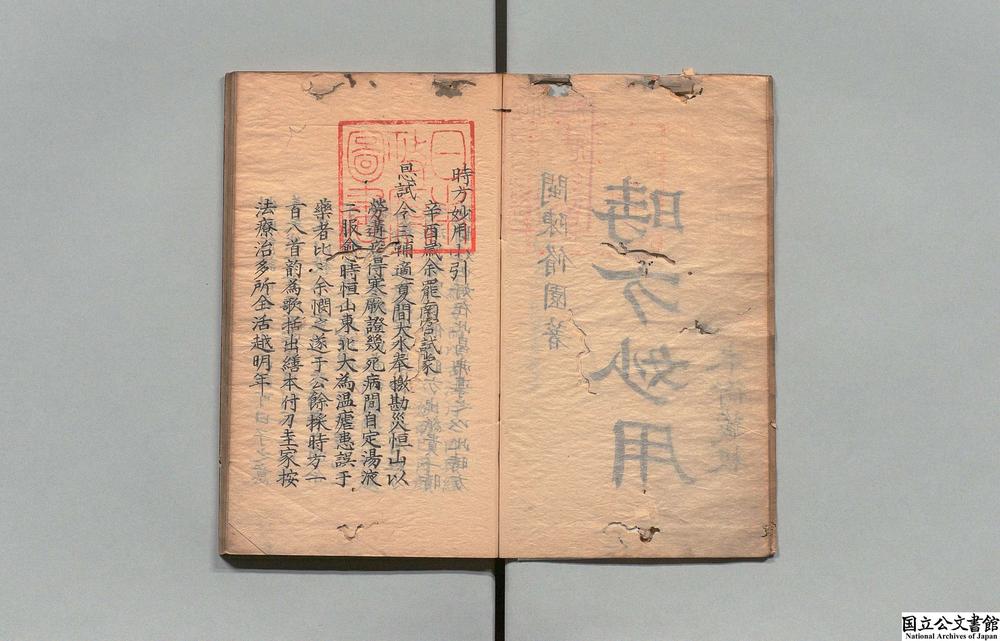 時方妙用
閩陳脩園著
時方妙用小引
辛酉歲余罷南宮試蒙
恩試令三輔適夏間大水奉檄勘災恒山以
勞遘疾得寒厥證幾死病間自定湯液
二服愈時恒山東北大為溫瘧患誤于
藥者比比余憫之遂于公餘採時方一
百八首韵為歌括出繕本付刀圭家按
法療治多所全活越明年
国立公文書館
National Archives of Japan